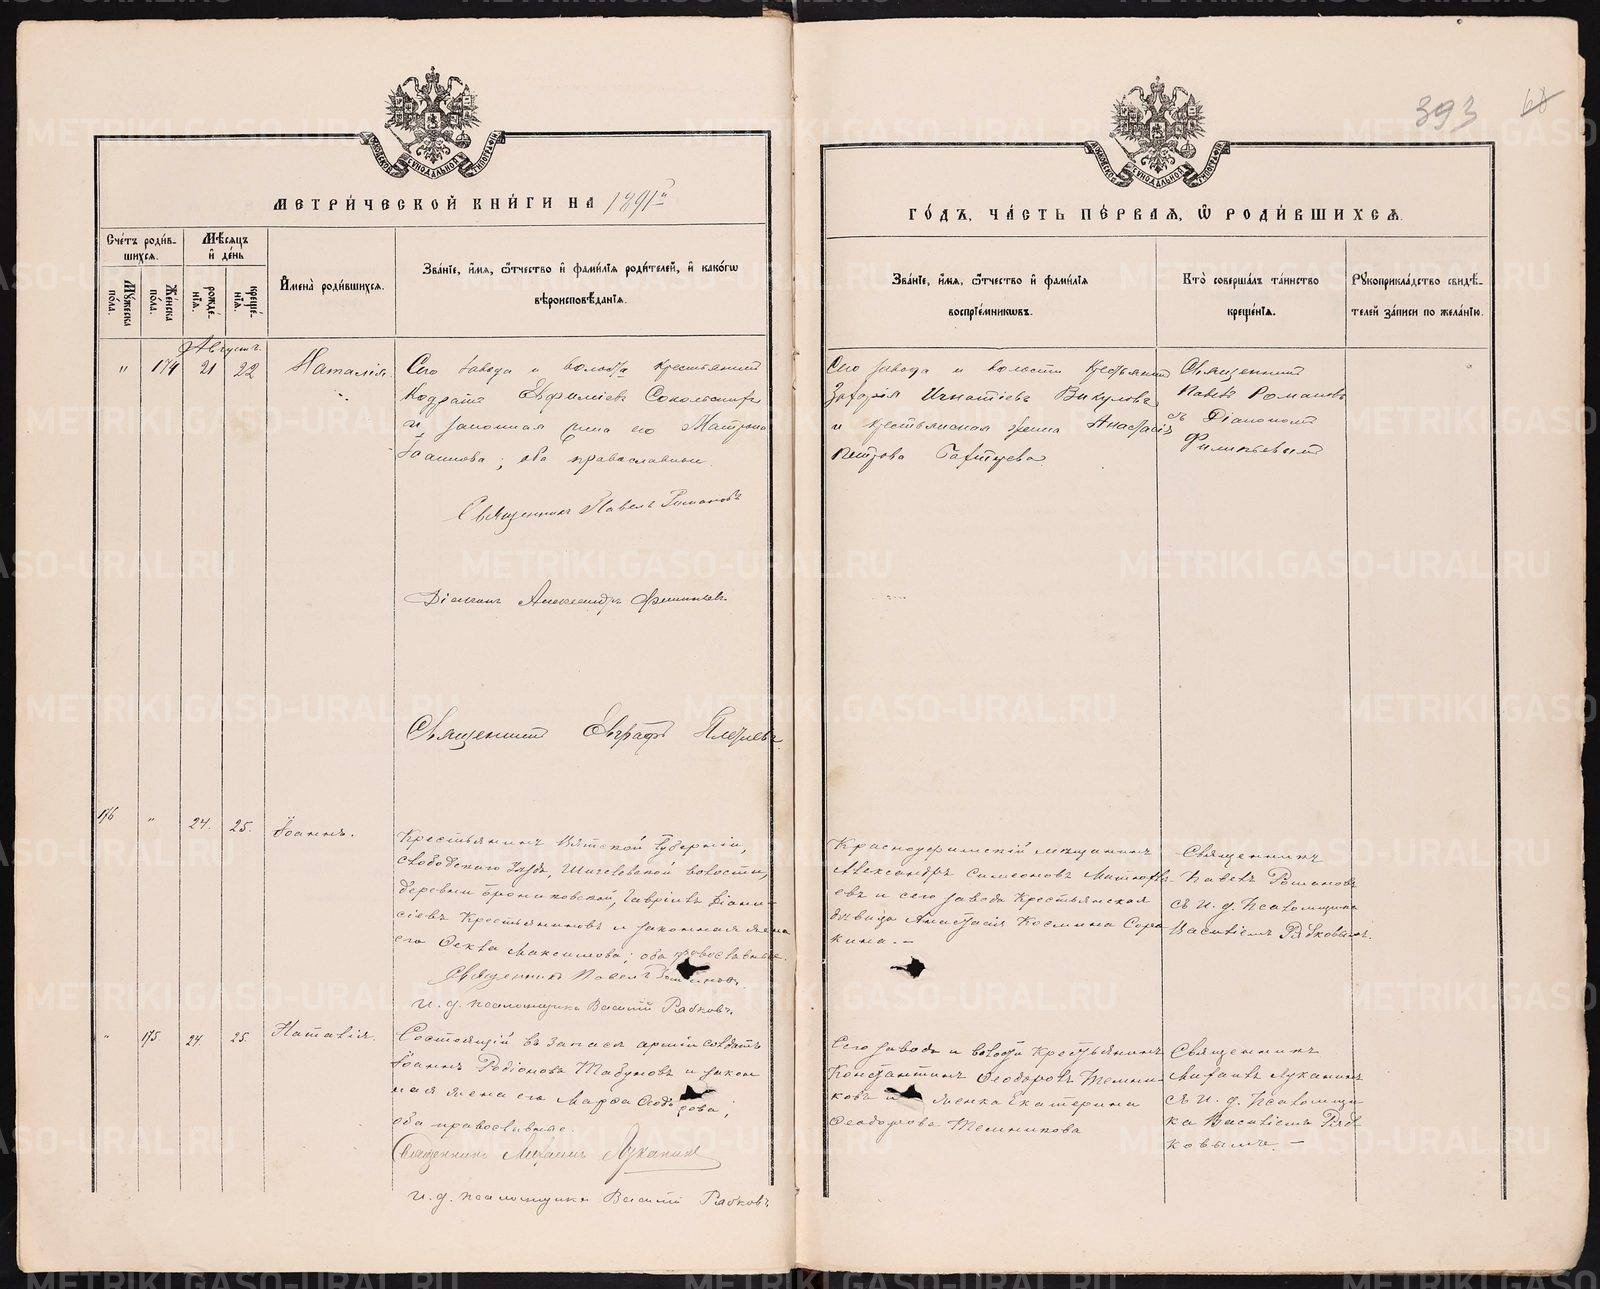 393 68
МЕТРИ́ЧЕСКОЙ КНИ́ГИ НА 1891й
ГО́ДЪ, ЧА́СТЬ ПЕ́РВАЯ, Ѿ РОДИ́ВШИХСЯ.
Сче́тъ роди́в-
шихся.
Мѣ́сяцъ
и де́нь
Мꙋжеска по́ла.
Же́нска по́ла.
рожде́-
нїя.
креще́-
нїя.
И҆мена̀ роди́вшихся.
Зва́нїе, и҆́мя, ѻ҆́тчество и҆ фами́лїя роди́телей, и҆ како́гѡ
вѣроисповѣ́данїя.
Зва́нїе, и҆́мя, ѻ҆́тчество и҆ фами́лїя
воспрїе́мникѡвъ.
Кто̀ соверша́лъ та́инство
креще́нїя.
Рꙋкоприкла́дство свидѣ́-
телей за́писи по жела́нїю.
Августъ
" 174 21 22 Наталія
Сего завода и волости крестьянинъ
Кодратъ Евфиміевъ
и законная жена его Матрона
Іоаннова; оба православные.
Священникъ Павелъ Романовъ
Діаконъ Александръ
Священникъ Евграфъ
Сего завода и волости крестьянинъ
Захарія Игнатіевъ Викуловъ
и крестьянская жена Анастасія
Петрова
Священникъ
Павелъ Романовъ
съ Діакономъ
176 " 24. 25. Іоаннъ.
Крестьянинъ Вятской губерніи,
Слободского уѣзда, волости,
деревни Гавріилъ Діони-
сіевъ Крестьяниновъ и законная жена
его Ѳекла Максимова; оба православные.
Священникъ Павелъ Романовъ.
И. д. псаломщика Василій Рябковъ.
мѣщанинъ
Александръ Симеоновъ
евъ и сего завода крестьянская
дѣвица Анастасія Космина Соро-
кина. –
Священникъ
Павелъ Романовъ
съ И. д. Псаломщика
Василіемъ Рябковымъ.
" 175. 24. 25. Наталія.
Состоящій въ запасѣ арміи солдатъ
Іоаннъ Родіоновъ Табуновъ и закон
ная жена его Марѳа Ѳеодорова;
оба православные.
Священникъ Михаилъ Луканинъ
И. д. псаломщика Василій Рябковъ
Сего завода и волости крестьянинъ
Константинъ Ѳеодоровъ Темни-
ковъ и женка Екатерина
Ѳеодорова Темникова
Священникъ
Михаилъ Луканинъ
съ И. д. Псаломщи-
ка Василіемъ Ряб
ковымъ. –
METRIKI.GASO-URAL.RU